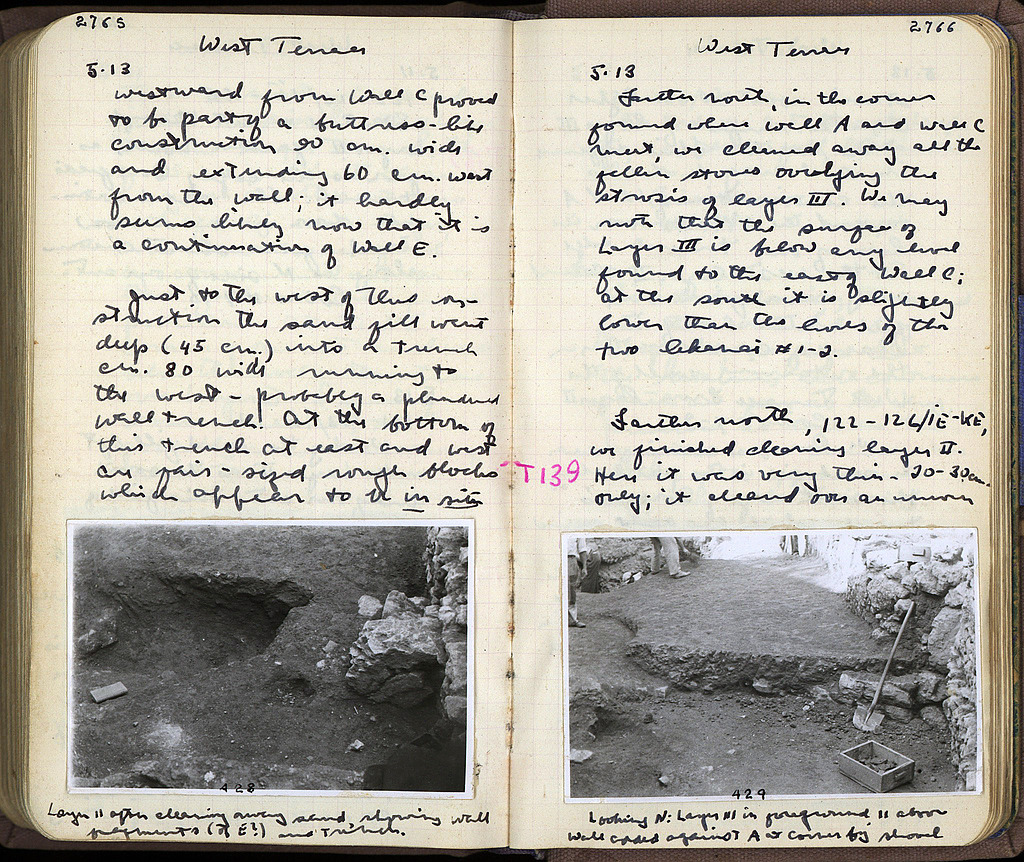 2765
West Terrace
5.13
westward from Wall C proved
to be party a buttress-like
construction 90 cm. wide
and extending 60 cm. west
from the wall; it hardly
seems likely now that it is
a continuation of Wall E.
Just to the west of this con-
struction the sand fill went
deep (45 cm.) into a trench
cm. 80 wide running to
the west - probably a plundered
wall trench. At the bottom of
this trench at east and west
are fair-sized rough blocks
which appear to be in situ
T139
428
Layer II after clearing away sand, showing wall
fragments (of E?) and Trench.
2766
West Terrace
5.13
Farther north, in the corner
formed where wall A and wall C
meet, we cleaned away all the
fallen stones overlying the
strosis of layer III. We may
note that the surface of
Layer III is below any level
found to the east of Wall C;
at the south it is slightly
lower than the level of the
two lekanai #1-2.
Farther north, 122-126/IE-KE,
we finished cleaning layer II.
Here it was very thin - 20-30 cm.
only; it cleaned over an uneven
429
Looking N: Layer III in foreground, II above
Wall C against A at corner by shovel